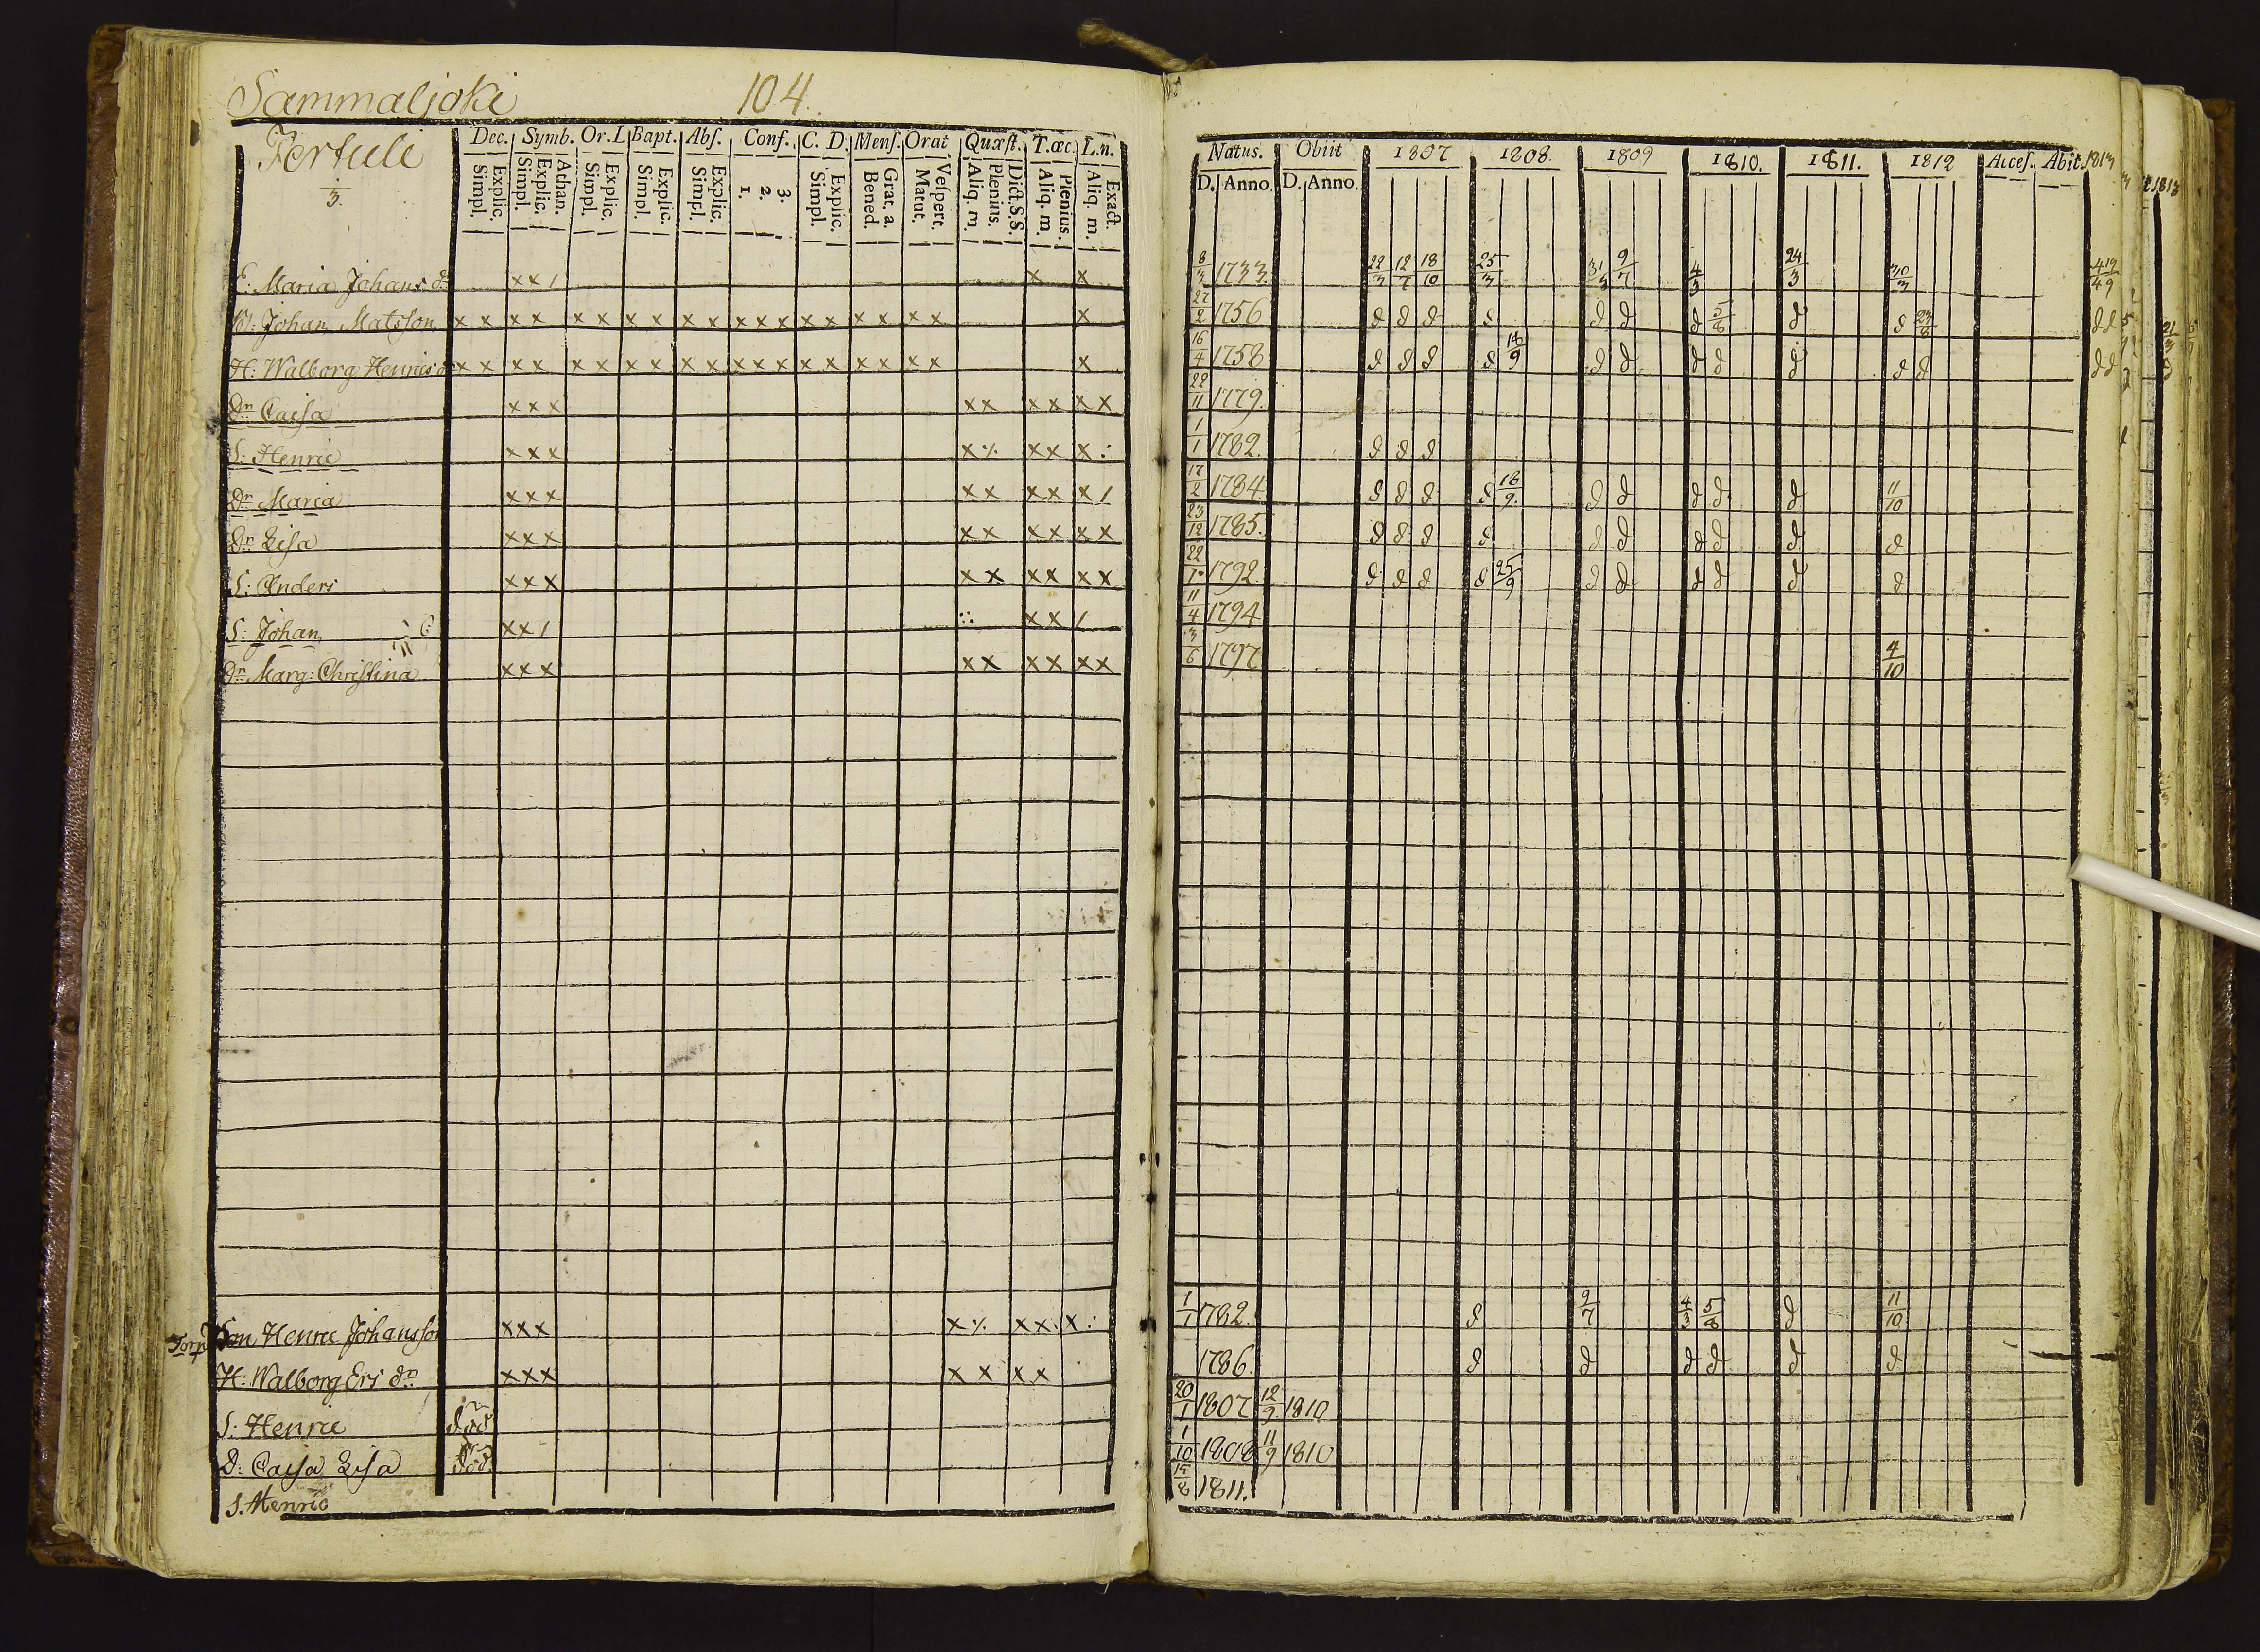 Sammaljoki 104.
Tertuli
3.
Dec. Symb. Or. L Bapt. Abs. Conf. C. D. Mens. Orat Quæst. T. œc. L. n.
Simpl. Explic. Simpl. Explic. Athan. Simpl. Explic. Simpl. Explic. Simpl. Explic. 1. 2. 3. Simpl. Explic. Bened. Grat. a. Matut. Vespert. Aliq. m. Plenius. Dict. S. S. Aliq. m Plenius. Aliq. m. Exact.
Natus. Obiit 1807 1808. 1809 1810. 1811. 1812 Acces. Abit. 1813
D. Anno. D. Anno.
E: Maria Johans d:r x x / x x 8/3 1733. 22/3 12/7 18/10 25/3 31/3 9/7 4/3 24/3 30/3
Johan Matsson x x x x x x x x x x x x x x x x x x x x 27/2 1756 d d d d d d d 5/8 d d 23/8 d d
H: Walborg Henrics d x x x x x x x x x x x x x x x x x x x x 16/4 1758 d d d d 18/9 d d d d d d d d d
Dn Caisa x x x x x x x x x 22/11 1779.
S: Henric x x x x ·/. x x x ·: 1/1 1782. d d d
Dn Maria x x x x x x x x / 17/2 1784. d d d d 18/9. d d d d d 11/10
Dn Lisa x x x x x x x x x 23/12 1785. d d d d d d d d d d
S: Anders x x x x x x x x x 22/1 1792 d d d d 25/9 d d d d d d
S: Johan x x / x x / 11/4 1794
Dn Marg: Christina x x x x x x x x x 3/6 1797 4/10
Torp Son Henric Johansson x x x x ·/. x x x ·: 1/1 1782. d 9/7 4/3 5/8 d 11/10
H: Walborg Ers dn x x x x x x x 1786. d d d d d d
S: Henric död 20/1 1807 12/9 1810
D: Caisa Lisa död. 1/10 1808 11/9 1810
S. Henric 15/8 1811.